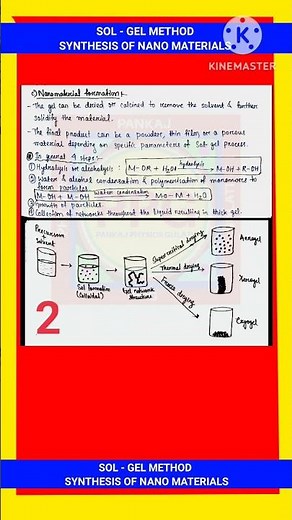 SOL - GEL METHOD
SYNTHESIS OF NANO MATERIALS
KINEMASTER
5) Nanomaterial formation:-
- The gel can be dried or calcined to remove the solvent & further
solidify the material.
- The final product can be a powders, thin film or a porous
material depending on specific parameters of Sol gel process.
In general 4 steps:-
① Hydrolysis or alcoholysis : M-OR + H2O → hydrolysis → M-OH + R-OH
② Water & alcohol condensation & polymerization of monomers to
form particles.
M-OH + M-OH → Water condensation → M-O-M + H2O
③ Growth of particles.
④ Collection of networks throughout the liquid resulting in thick gel.
Precursor
+
Solvent
Sol formation
(colloidal)
Gel network
structure
Supercritical drying
Aerogel
Thermal drying
Xerogel
Freeze drying
Cryogel
2
SOL - GEL METHOD
SYNTHESIS OF NANO MATERIALS